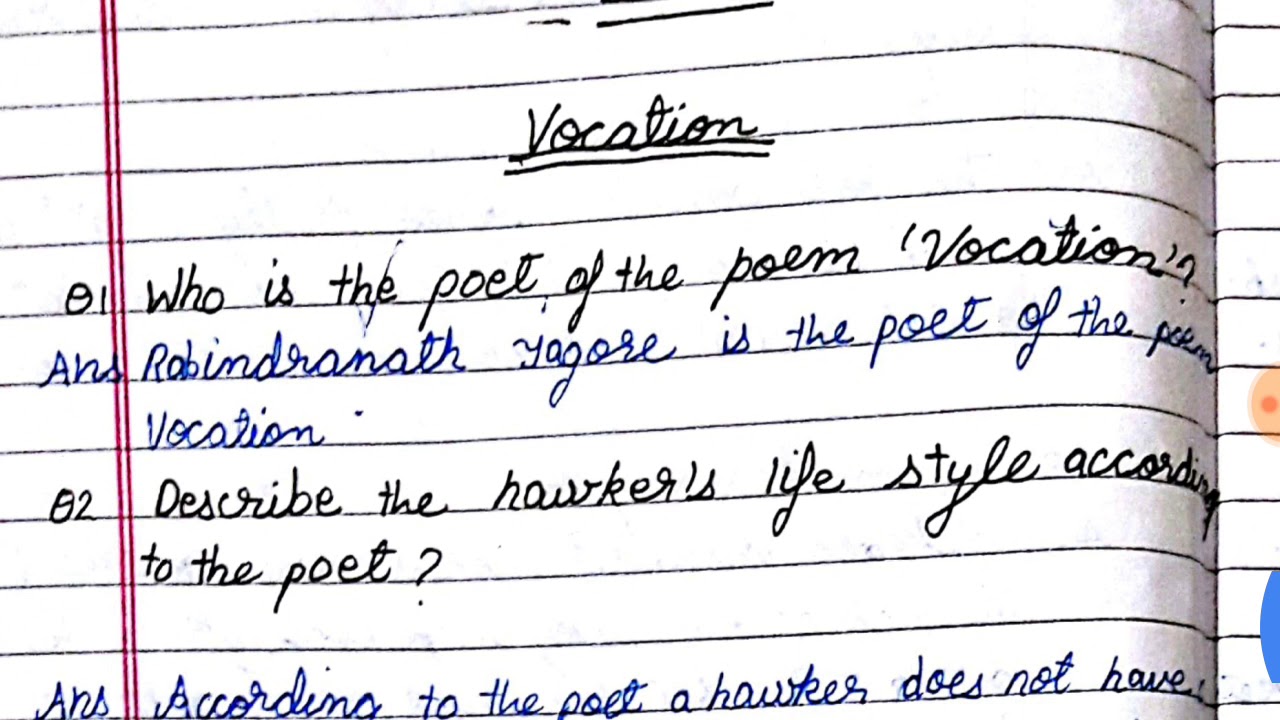 Vocation
Q1 Who is the poet of the poem 'Vocation'?
Ans Rabindranath Tagore is the poet of the poem
Vocation.
Q2 Describe the hawker's life style according
to the poet?
Ans According to the poet a hawker does not have